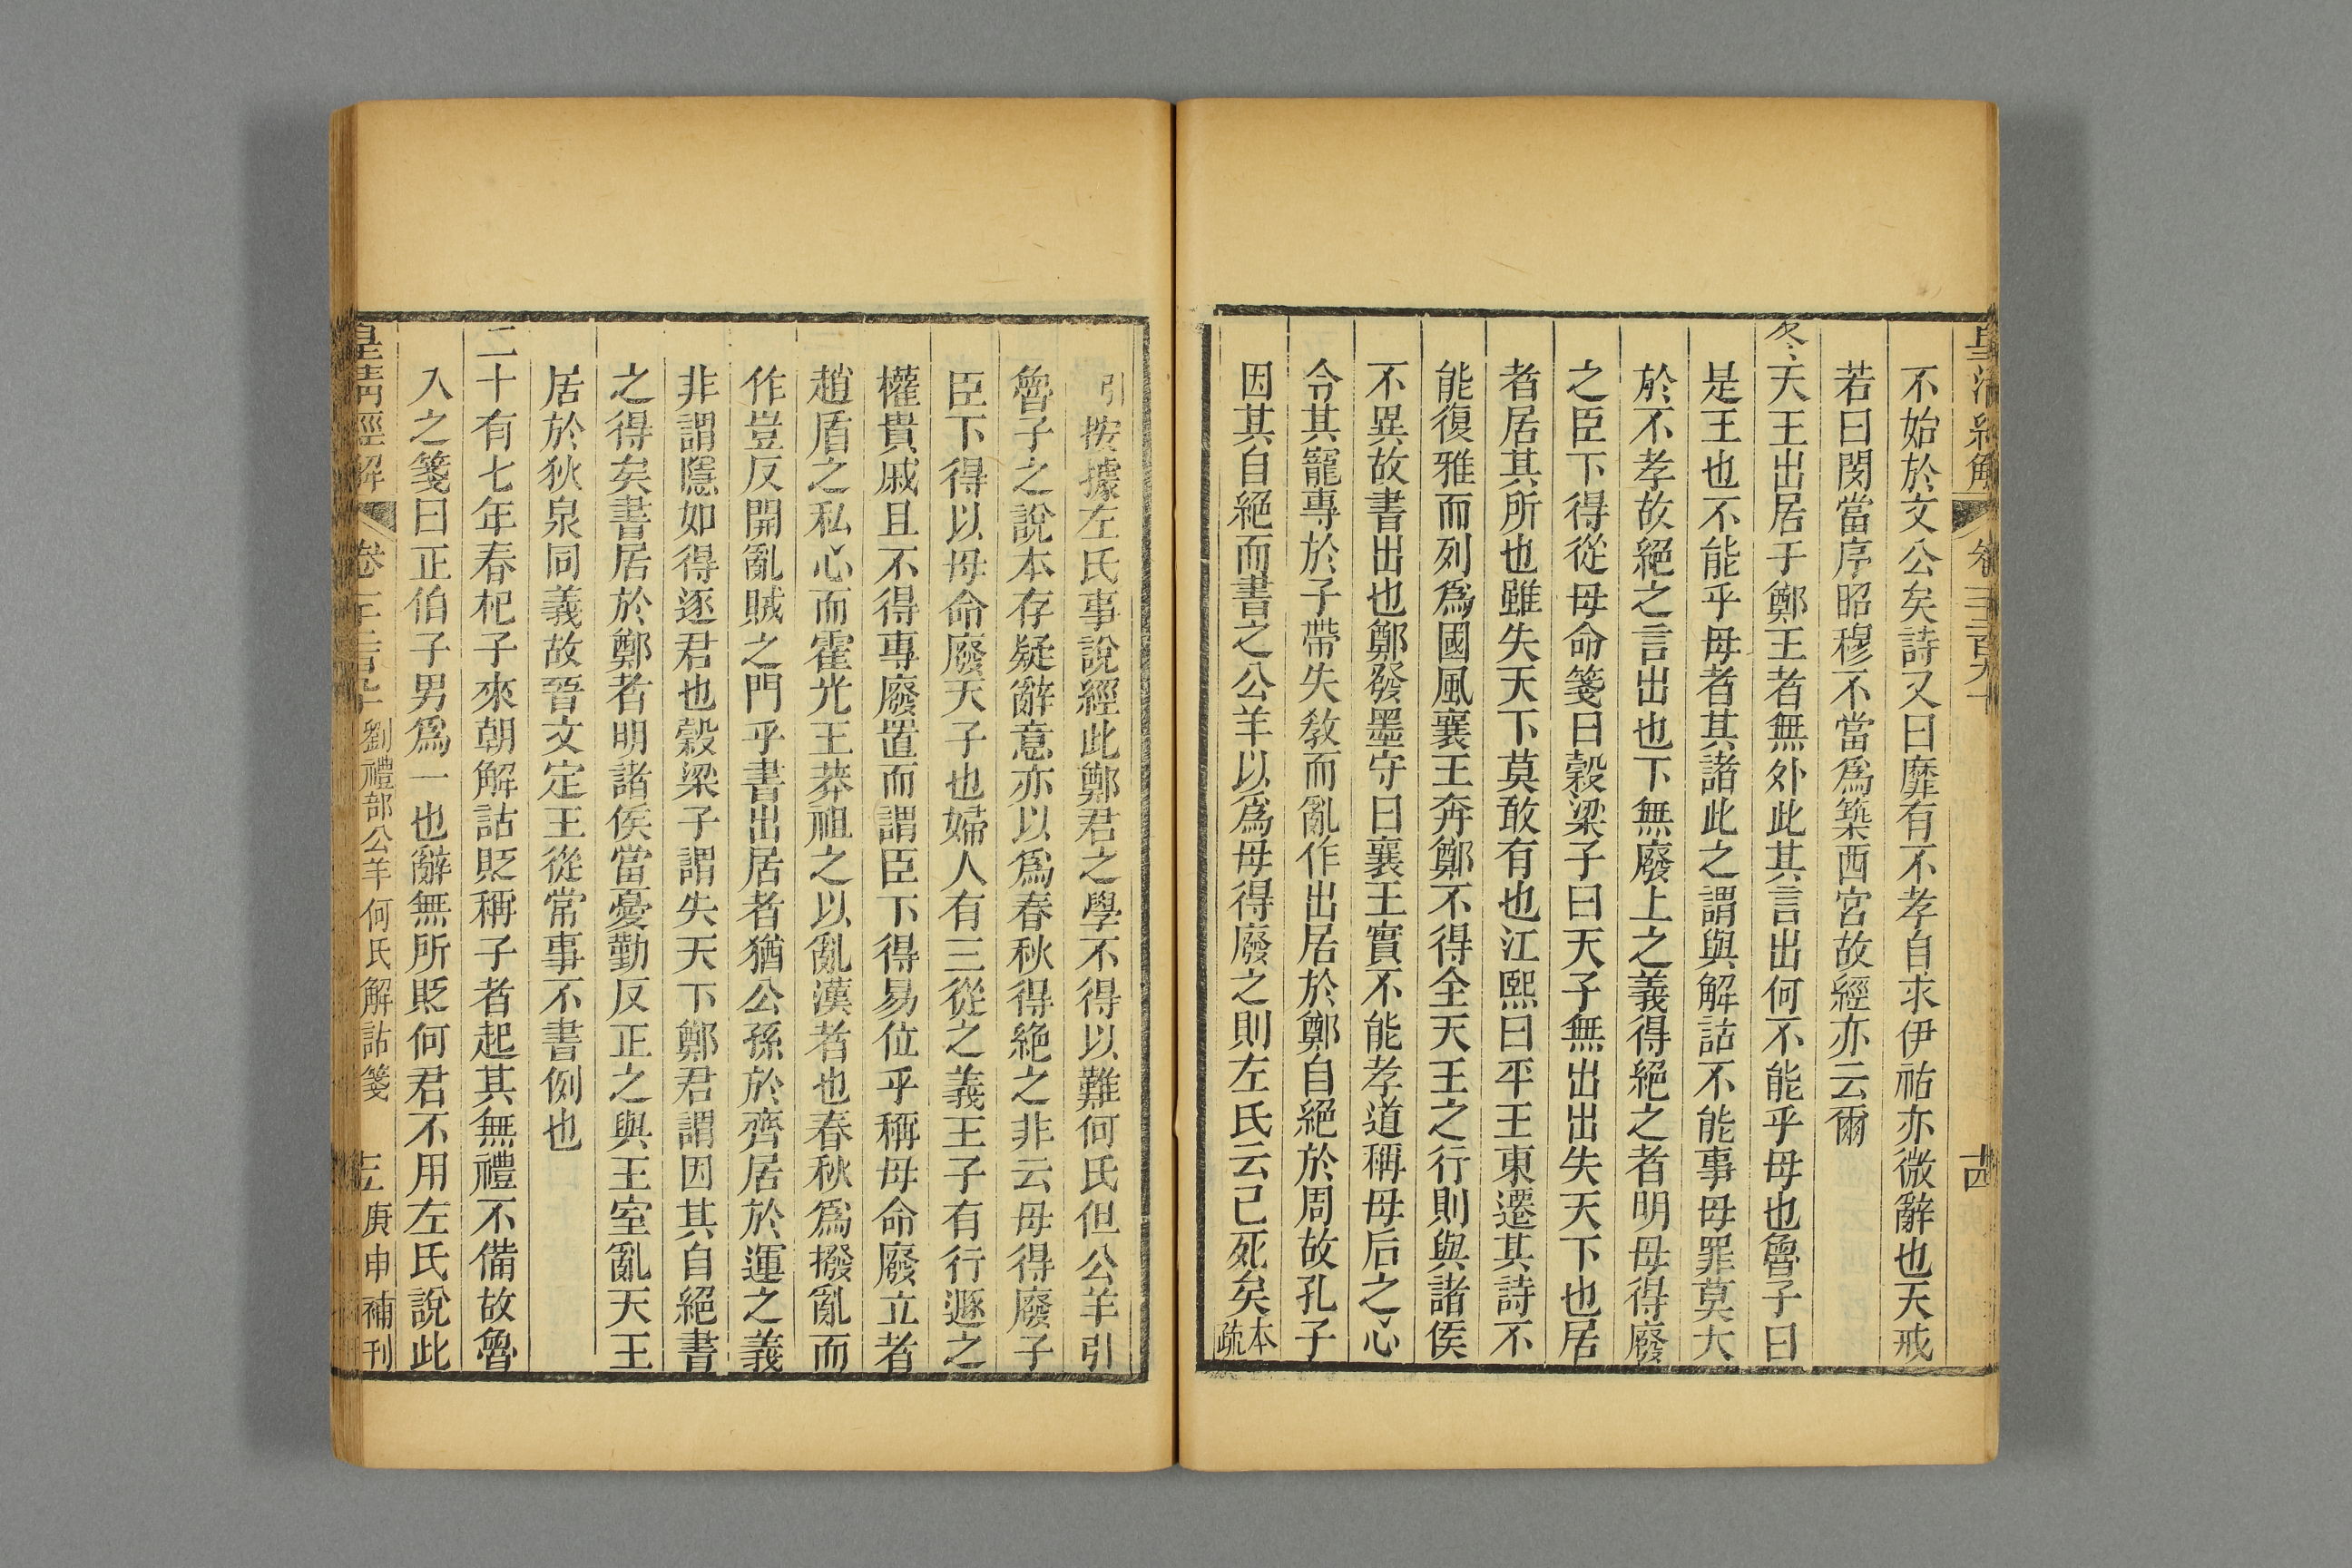 皇清經解 卷千二百九十 古
不始於文公矣詩又曰靡有不孝自求伊祜亦微辭也天戒
若曰閔當序昭穆不當爲築西宮故經亦云爾
冬天王出居于鄭王者無外此其言出何不能乎母也魯子曰
是王也不能乎母者其諸此之謂與解詁不能事母罪莫大
於不孝故絕之言出也下無廢上之義得絕之者明母得廢
之臣下得從母命箋曰穀梁子曰天子無出出失天下也居
者居其所也雖失天下莫敢有也江熙曰平王東遷其詩不
能復雅而列爲國風襄王奔鄭不得全天王之行則與諸侯
不異故書出也鄭發墨守曰襄王實不能孝道稱母后之心
令其寵專於子帶失敎而亂作出居於鄭自絕於周故孔子
因其自絕而書之公羊以爲母得廢之則左氏云己死矣本疏
引按據左氏事說經此鄭君之學不得以難何氏但公羊引
魯子之說本存疑辭意亦以爲春秋得絕之非云母得廢子
臣下得以母命廢天子也婦人有三從之義王子有行遯之
權貴戚且不得專廢置而謂臣下得易位乎稱母命廢立者
趙盾之私心而霍光王莽祖之以亂漢者也春秋爲撥亂而
作豈反開亂賊之門乎書出居者猶公孫於齊居於運之義
非謂隱如得逐君也穀梁子謂失天下鄭君謂因其自絕書
之得矣書居於鄭者明諸侯當憂勤反正之與王室亂天王
居於狄泉同義故晉文定王從常事不書例也
二十有七年春杞子來朝解詁貶稱子者起其無禮不備故魯
入之箋曰正伯子男爲一也辭無所貶何君不用左氏說此
皇清經解 卷 劉禮部公羊何氏解詁箋 庚申補刊